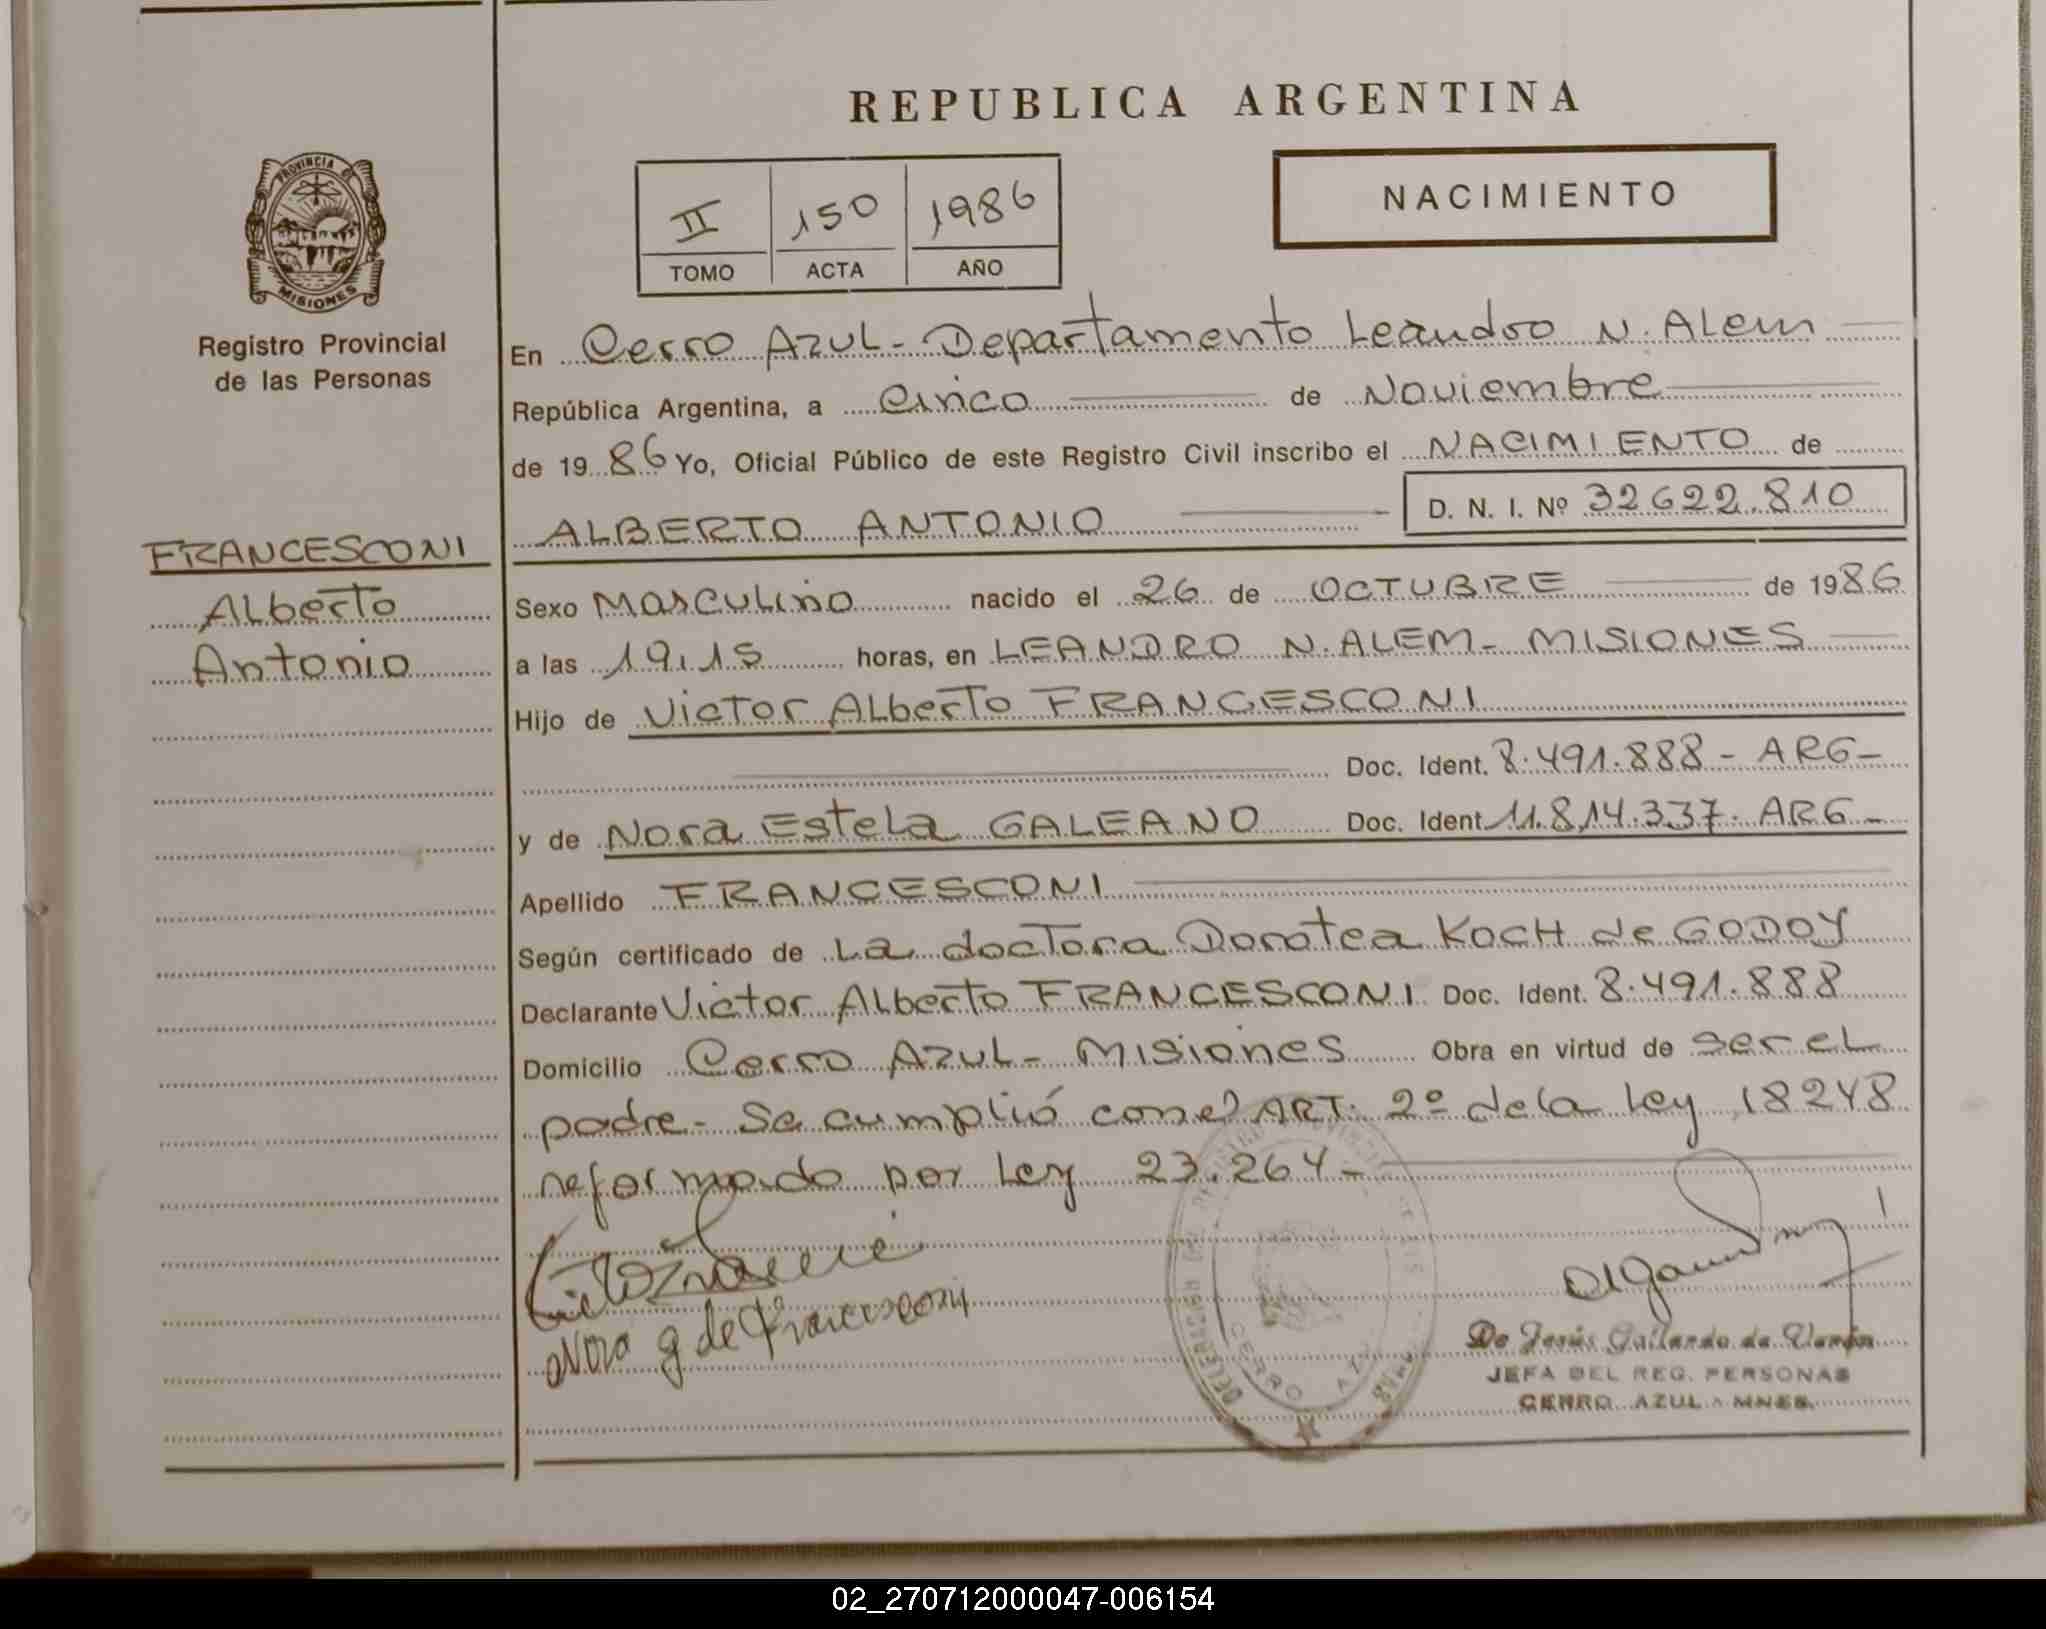 REPUBLICA ARGENTINA
PROVINCIA DE
MISIONES
Registro Provincial
de las Personas
II 150 1986
TOMO ACTA AÑO
NACIMIENTO
En Cerro Azul - Departamento Leandro N. Alem
República Argentina, a Cinco de Noviembre
de 1986 Yo, Oficial Público de este Registro Civil inscribo el NACIMIENTO de
ALBERTO ANTONIO D. N. I. Nº 32622.810
FRANCESCONI
Alberto
Antonio
Sexo Masculino nacido el 26 de OCTUBRE de 1986
a las 19,15 horas, en LEANDRO N. ALEM - MISIONES
Hijo de Victor Alberto FRANCESCONI
Doc. Ident. 8.491.888 - ARG -
y de Nora Estela GALEANO Doc. Ident 11.814.337. ARG -
Apellido FRANCESCONI
Según certificado de La doctora Dorotea KOCH de GODOY
Declarante Victor Alberto FRANCESCONI Doc. Ident. 8.491.888
Domicilio Cerro Azul - Misiones Obra en virtud de ser el
padre - Se cumplió con el ART. 2º de la Ley 18248
reformado por Ley 23.264 -
Nora G de Francesconi
DELEGACION
CERRO AZUL
De Jesús Gallardo de
JEFA DEL REG. PERSONAS
CERRO AZUL - MNES.
02_270712000047-006154